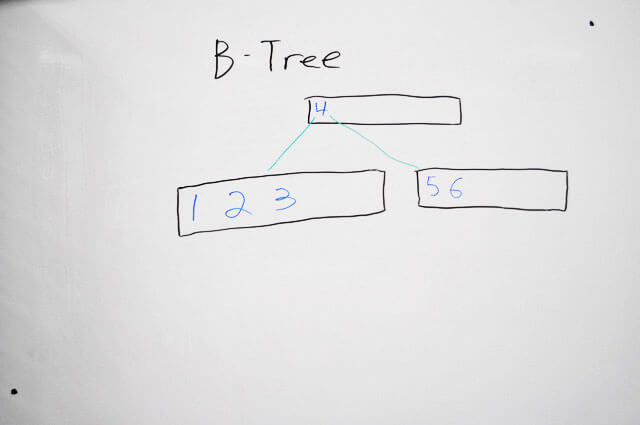 B-Tree
4
1 2 3
5 6